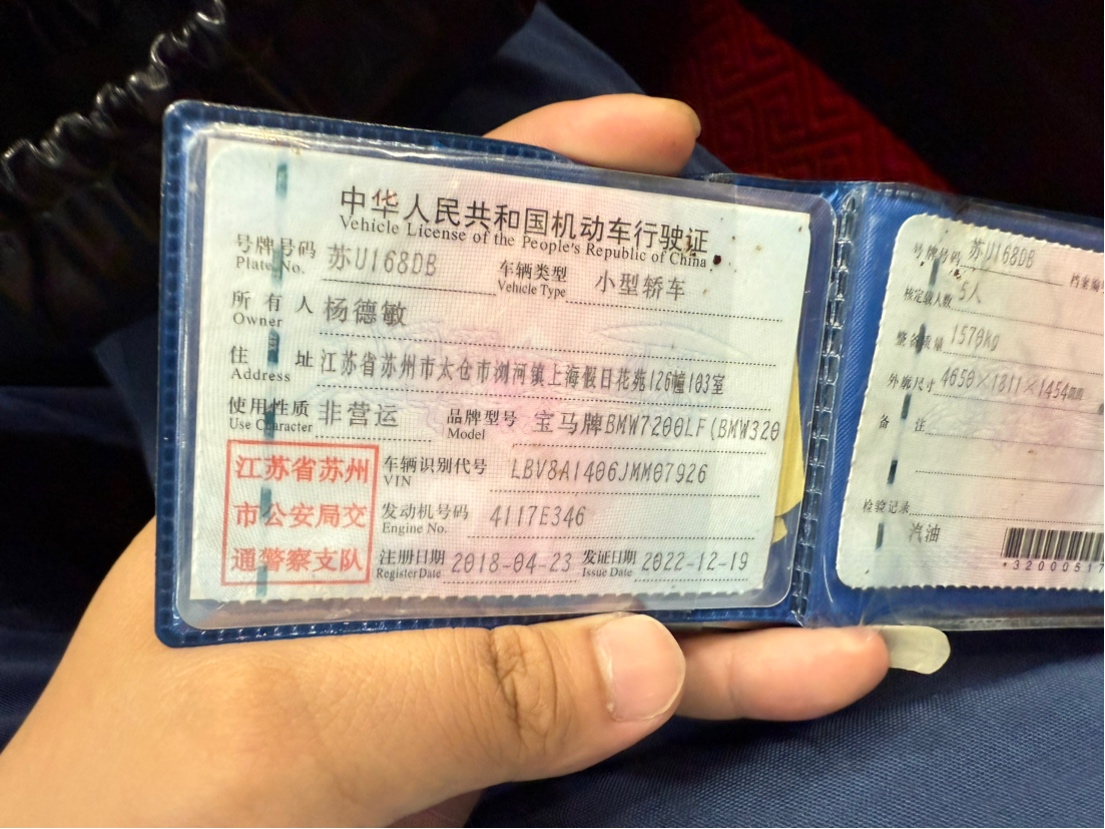 中华人民共和国机动车行驶证
Vehicle License of the People's Republic of China
号牌号码 苏U168DB 车辆类型 小型轿车
Plate No. Vehicle Type
所有人 杨德敏
Owner
住址 江苏省苏州市太仓市浏河镇上海假日花苑126幢103室
Address
使用性质 非营运 品牌型号 宝马牌BMW7200LF(BMW320
Use Character Model
江苏省苏州
市公安局交
通警察支队
车辆识别代号 LBV8A1406JMM07926
VIN
发动机号码 4117E346
Engine No.
注册日期 2018-04-23 发证日期 2022-12-19
Register Date Issue Date
号牌号码 苏U168DB 档案编号
核定载人数 5人
整备质量 1570kg
外廓尺寸 4650×1811×1454mm
备注
检验记录
汽油
*32000517